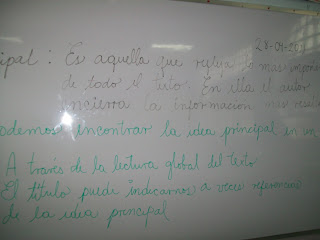 28-04-
ipal: Es aquella que refleja lo mas
de todo el texto. En ella el autor
la información mas
odemos encontrar la idea principal en un
A través de la lectura global del texto
El título puede indicarnos a veces referencias
de la idea principal